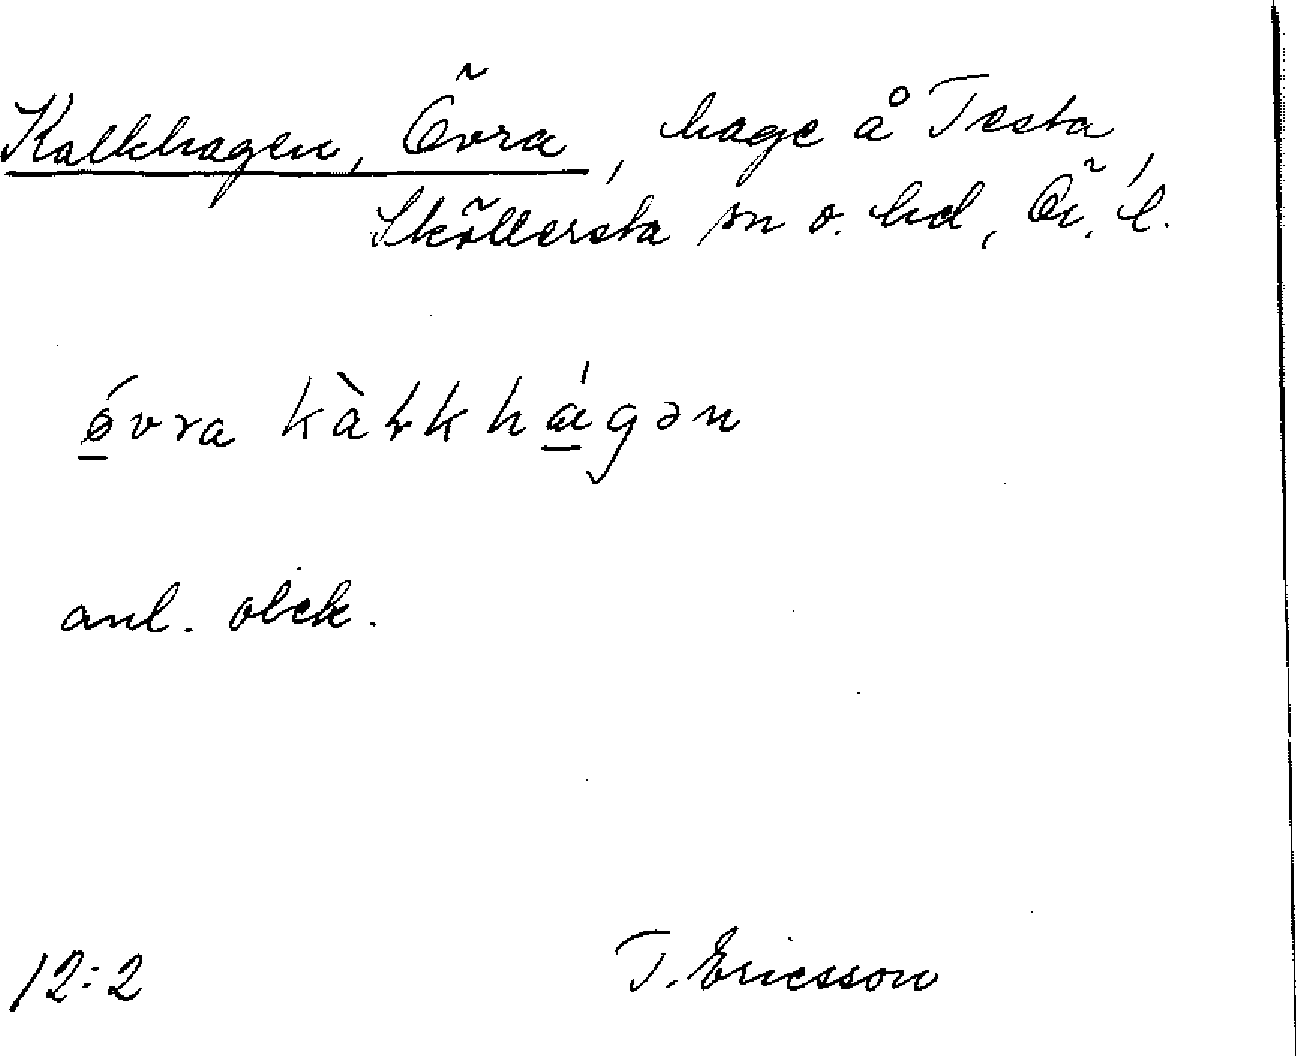 Kalkhagen, Övra, hage å Testa,
Sköllersta sn o. hd, Ö. l.
ǿ̲vra kàłkhá̲gən
anl. obek.
12:2
T. Ericsson